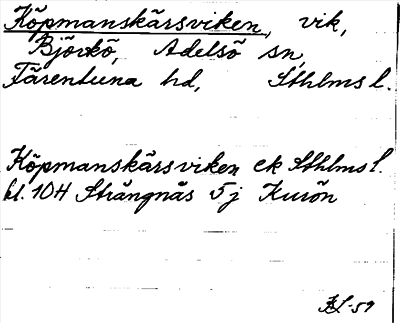 Köpmanskärsviken, vik,
Björkö, Adelsö sn,
Färentuna hd, Sthlms l.
Köpmanskärsviken ek Sthlms l.
bl. 104 Strängnäs 5j Kurön
-59